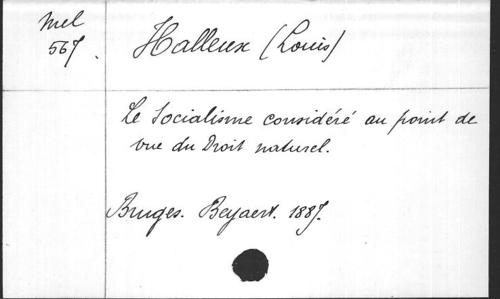 Mel
567.
Halleux (Louis)
Le Socialisme considéré au point de
vue du Droit naturel.
Bruges. Beyaert. 1887.